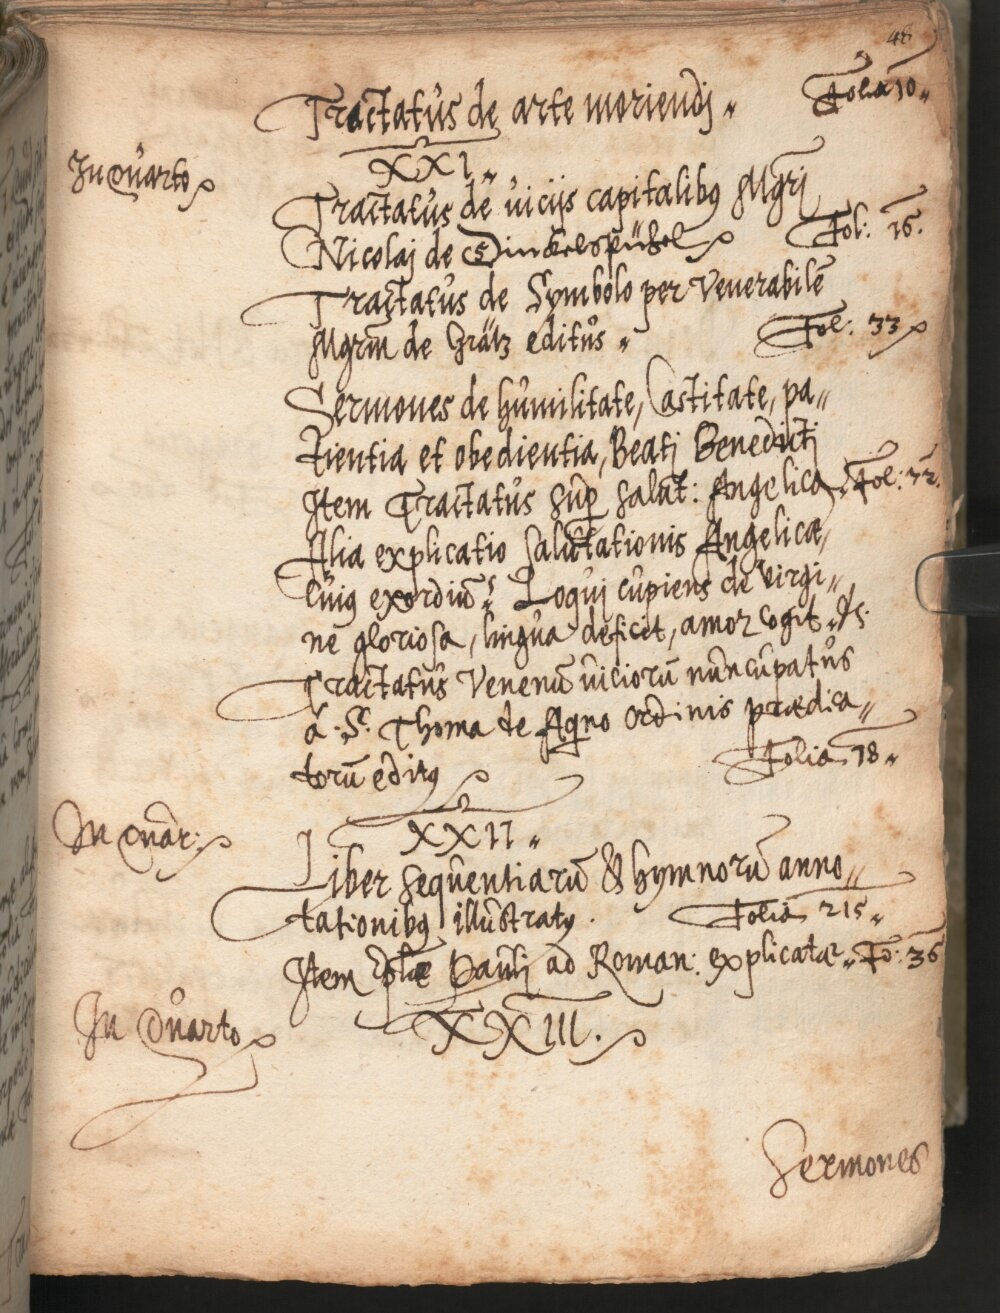 Tractatus de arte moriendj„ Folia 10„
In Quarto
XXI„
Tractatus de uicijs capitalibꝰ Mgrj
Nicolaj de Dinckelspühel Fol: 16.
Tractatus de Symbolo per Venerabilē
Mgrm̄ de Grätz editus„ Fol: 33
Sermones de humilitate, Castitate, pa„
tientia et obedientia, Beatj Benedictj
Item Tractatus sup̱ salut: Angelica. Fol: 32.
Alia explicatio salutationis Angelicæ,
Cuiꝰ exordiū: Loquj cupiens de Virgi„
ne gloriosa, lingua deficit, amor cogit„
Tractatus Venenū uiciorū nuncupatus
á S. Thoma de Aq̄no Ordinis prædica„
torū editꝰ Folia 18„
In Quar:
XXII„
Liber sequentiarū & hymnorū anno„
tationibꝰ illustratꝰ. Folia 215„
Item Ep̄læ Paulj ad Roman: explicatæ„ Fo: 36
In Quarto
XXIII.
Sermones